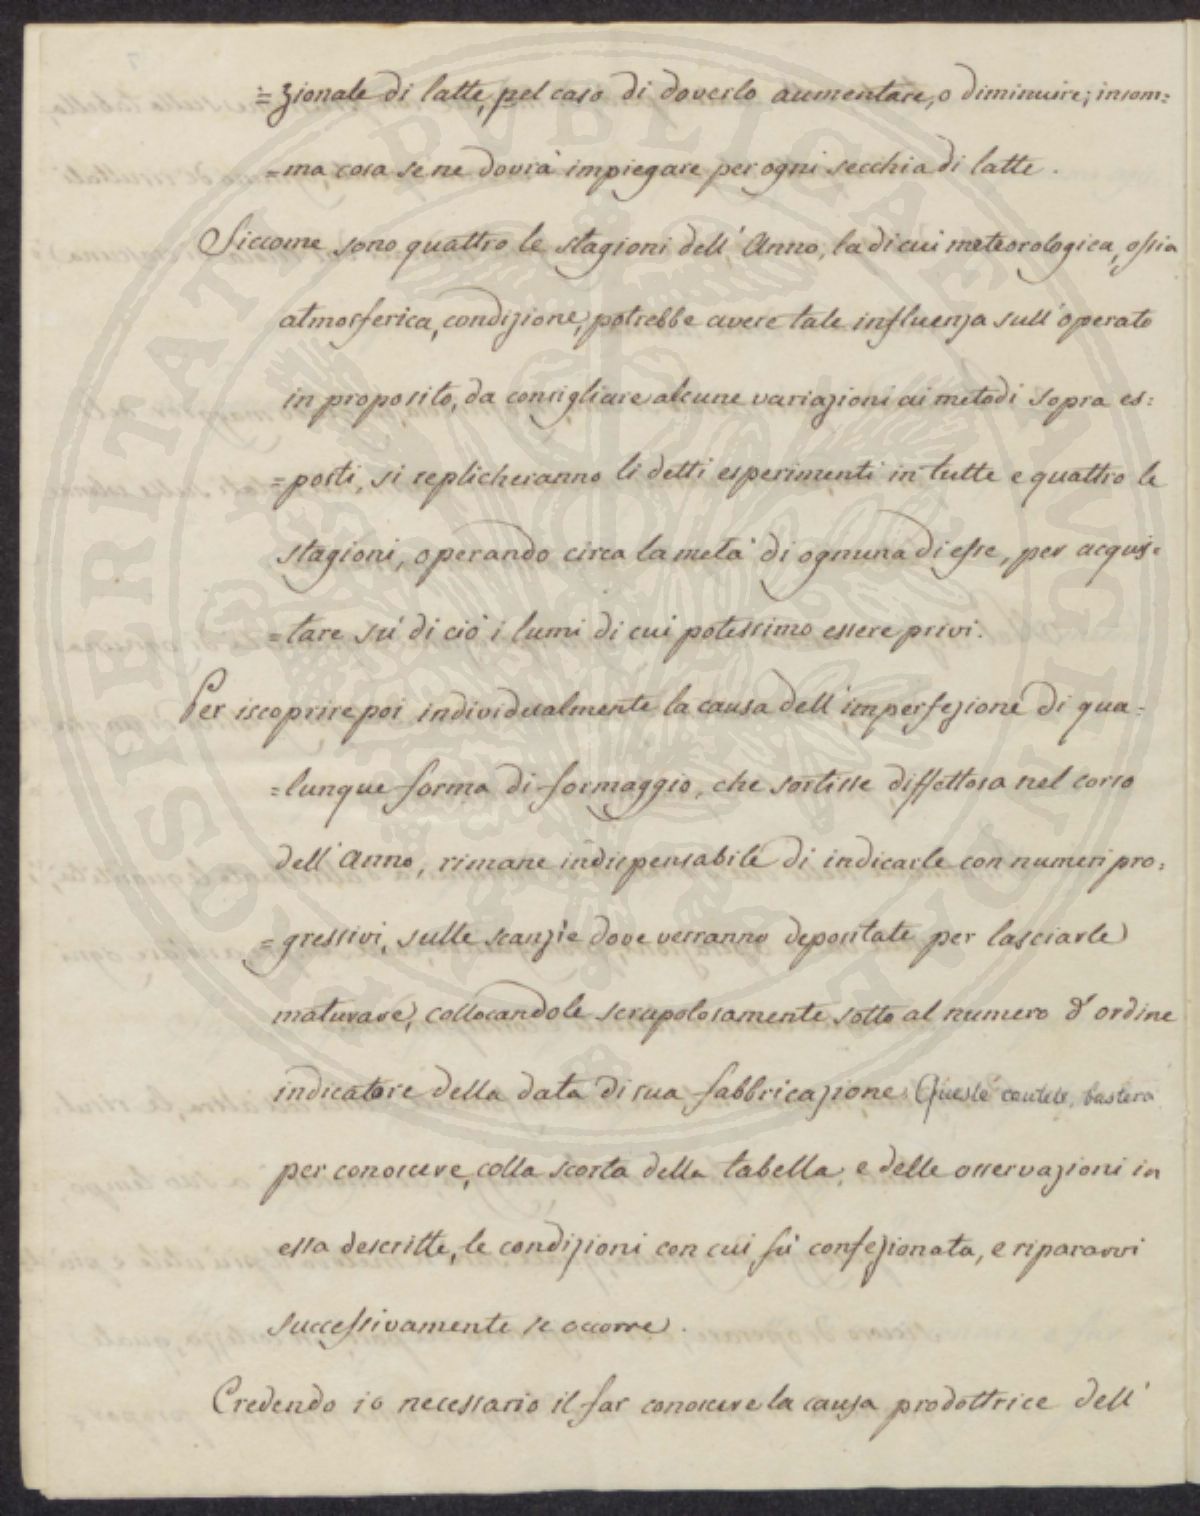 =zionale di latte, pel caso di doverlo aumentare, o diminuire; insom=
=ma cosa se ne dovrà impiegare per ogni secchia di latte.
Siccome sono quattro le stagioni dell' Anno, la di cui meteorologica, ossia
atmosferica, condizione, potrebbe avere tale influenza sull' operato
in proposito, da consigliare alcune variazioni ai metodi sopra es=
=posti, si replicheranno li detti esperimenti in tutte e quattro le
stagioni, operando circa la metà di ognuna di esse, per acquis=
=tare sù di ciò i lumi di cui potessimo essere privi.
Per iscoprire poi individualmente la causa dell' imperfezione di qua=
=lunque forma di formaggio, che sortisse diffettosa nel corso
dell' Anno, rimane indispensabile di indicarle con numeri pro=
=gressivi, sulle scanzie dove verranno depositate per lasciarle
maturare, collocandole scrupolosamente sotto al numero d' ordine
indicatore della data di sua fabbricazione. Queste cautele, basterà
per conoscere, colla scorta della tabella, e delle osservazioni in
essa descritte, le condizioni con cui fù confezionata, e ripararvi
successivamente se occorre.
Credendo io necessario il far conoscere la causa prodottrice dell'
NEC IN OBSCURITATE